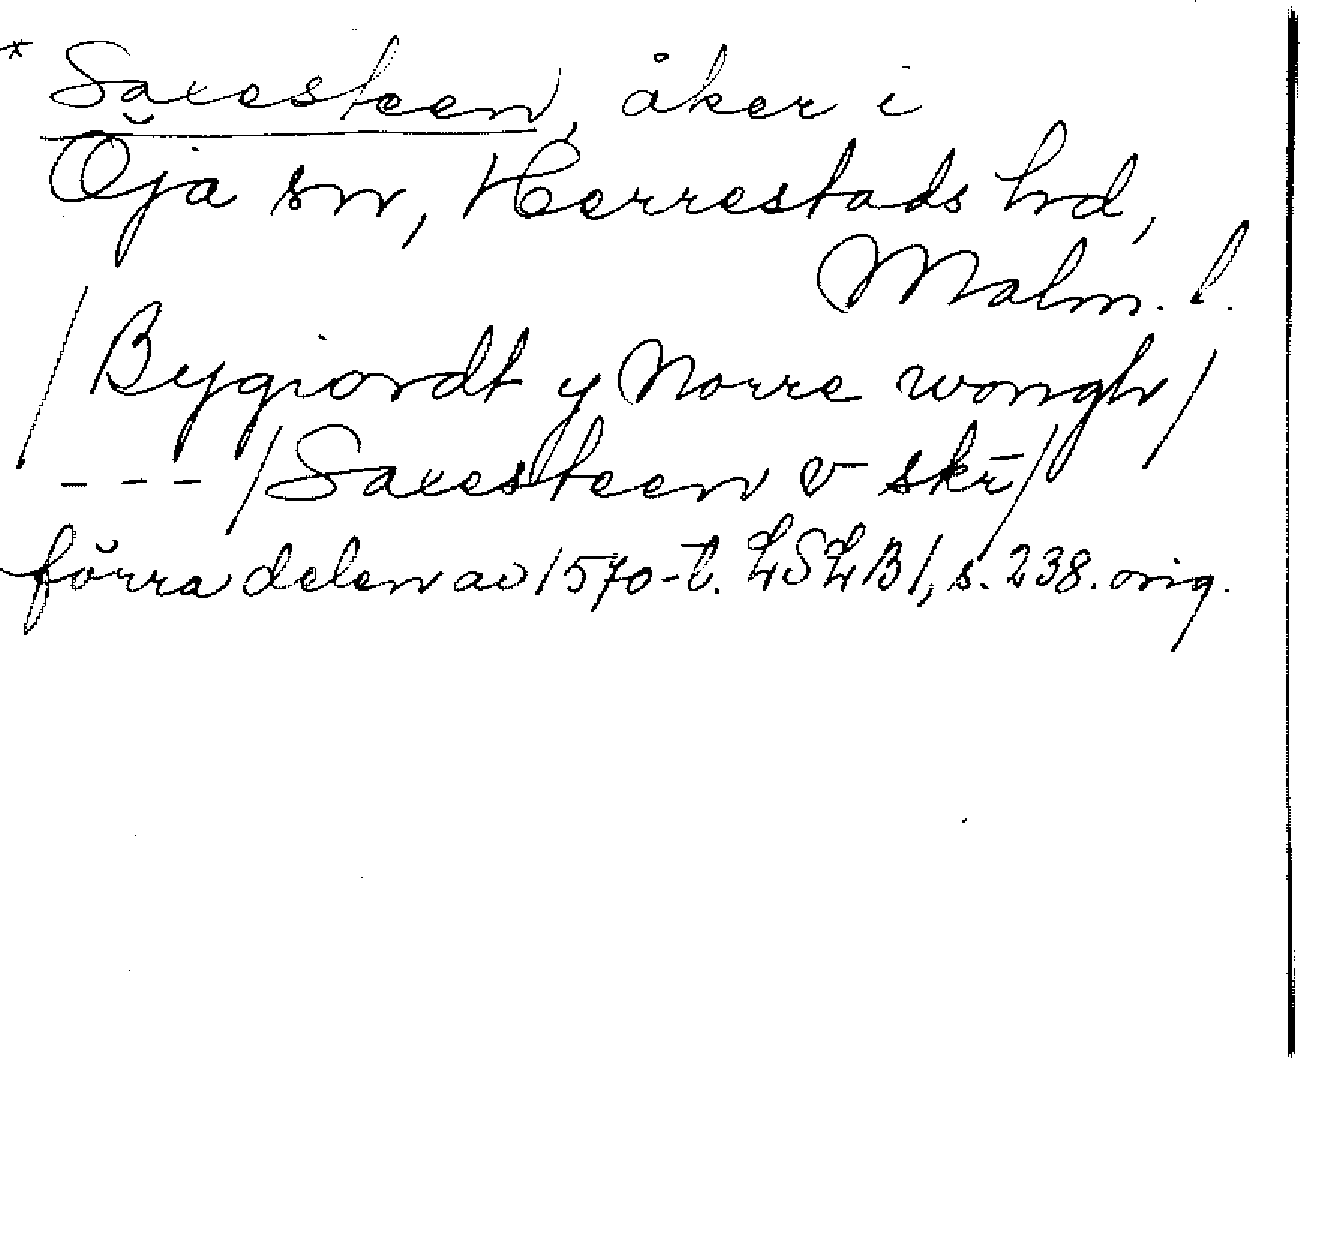 * Saxesteen, åker i
Öja sn, Herrestads hd,
Malm. l.
/Bygiordt y Norre wongh/
--- /Saxesteen v skr̄/
förra delen av 1570-t. LSLB1, s. 238. orig.